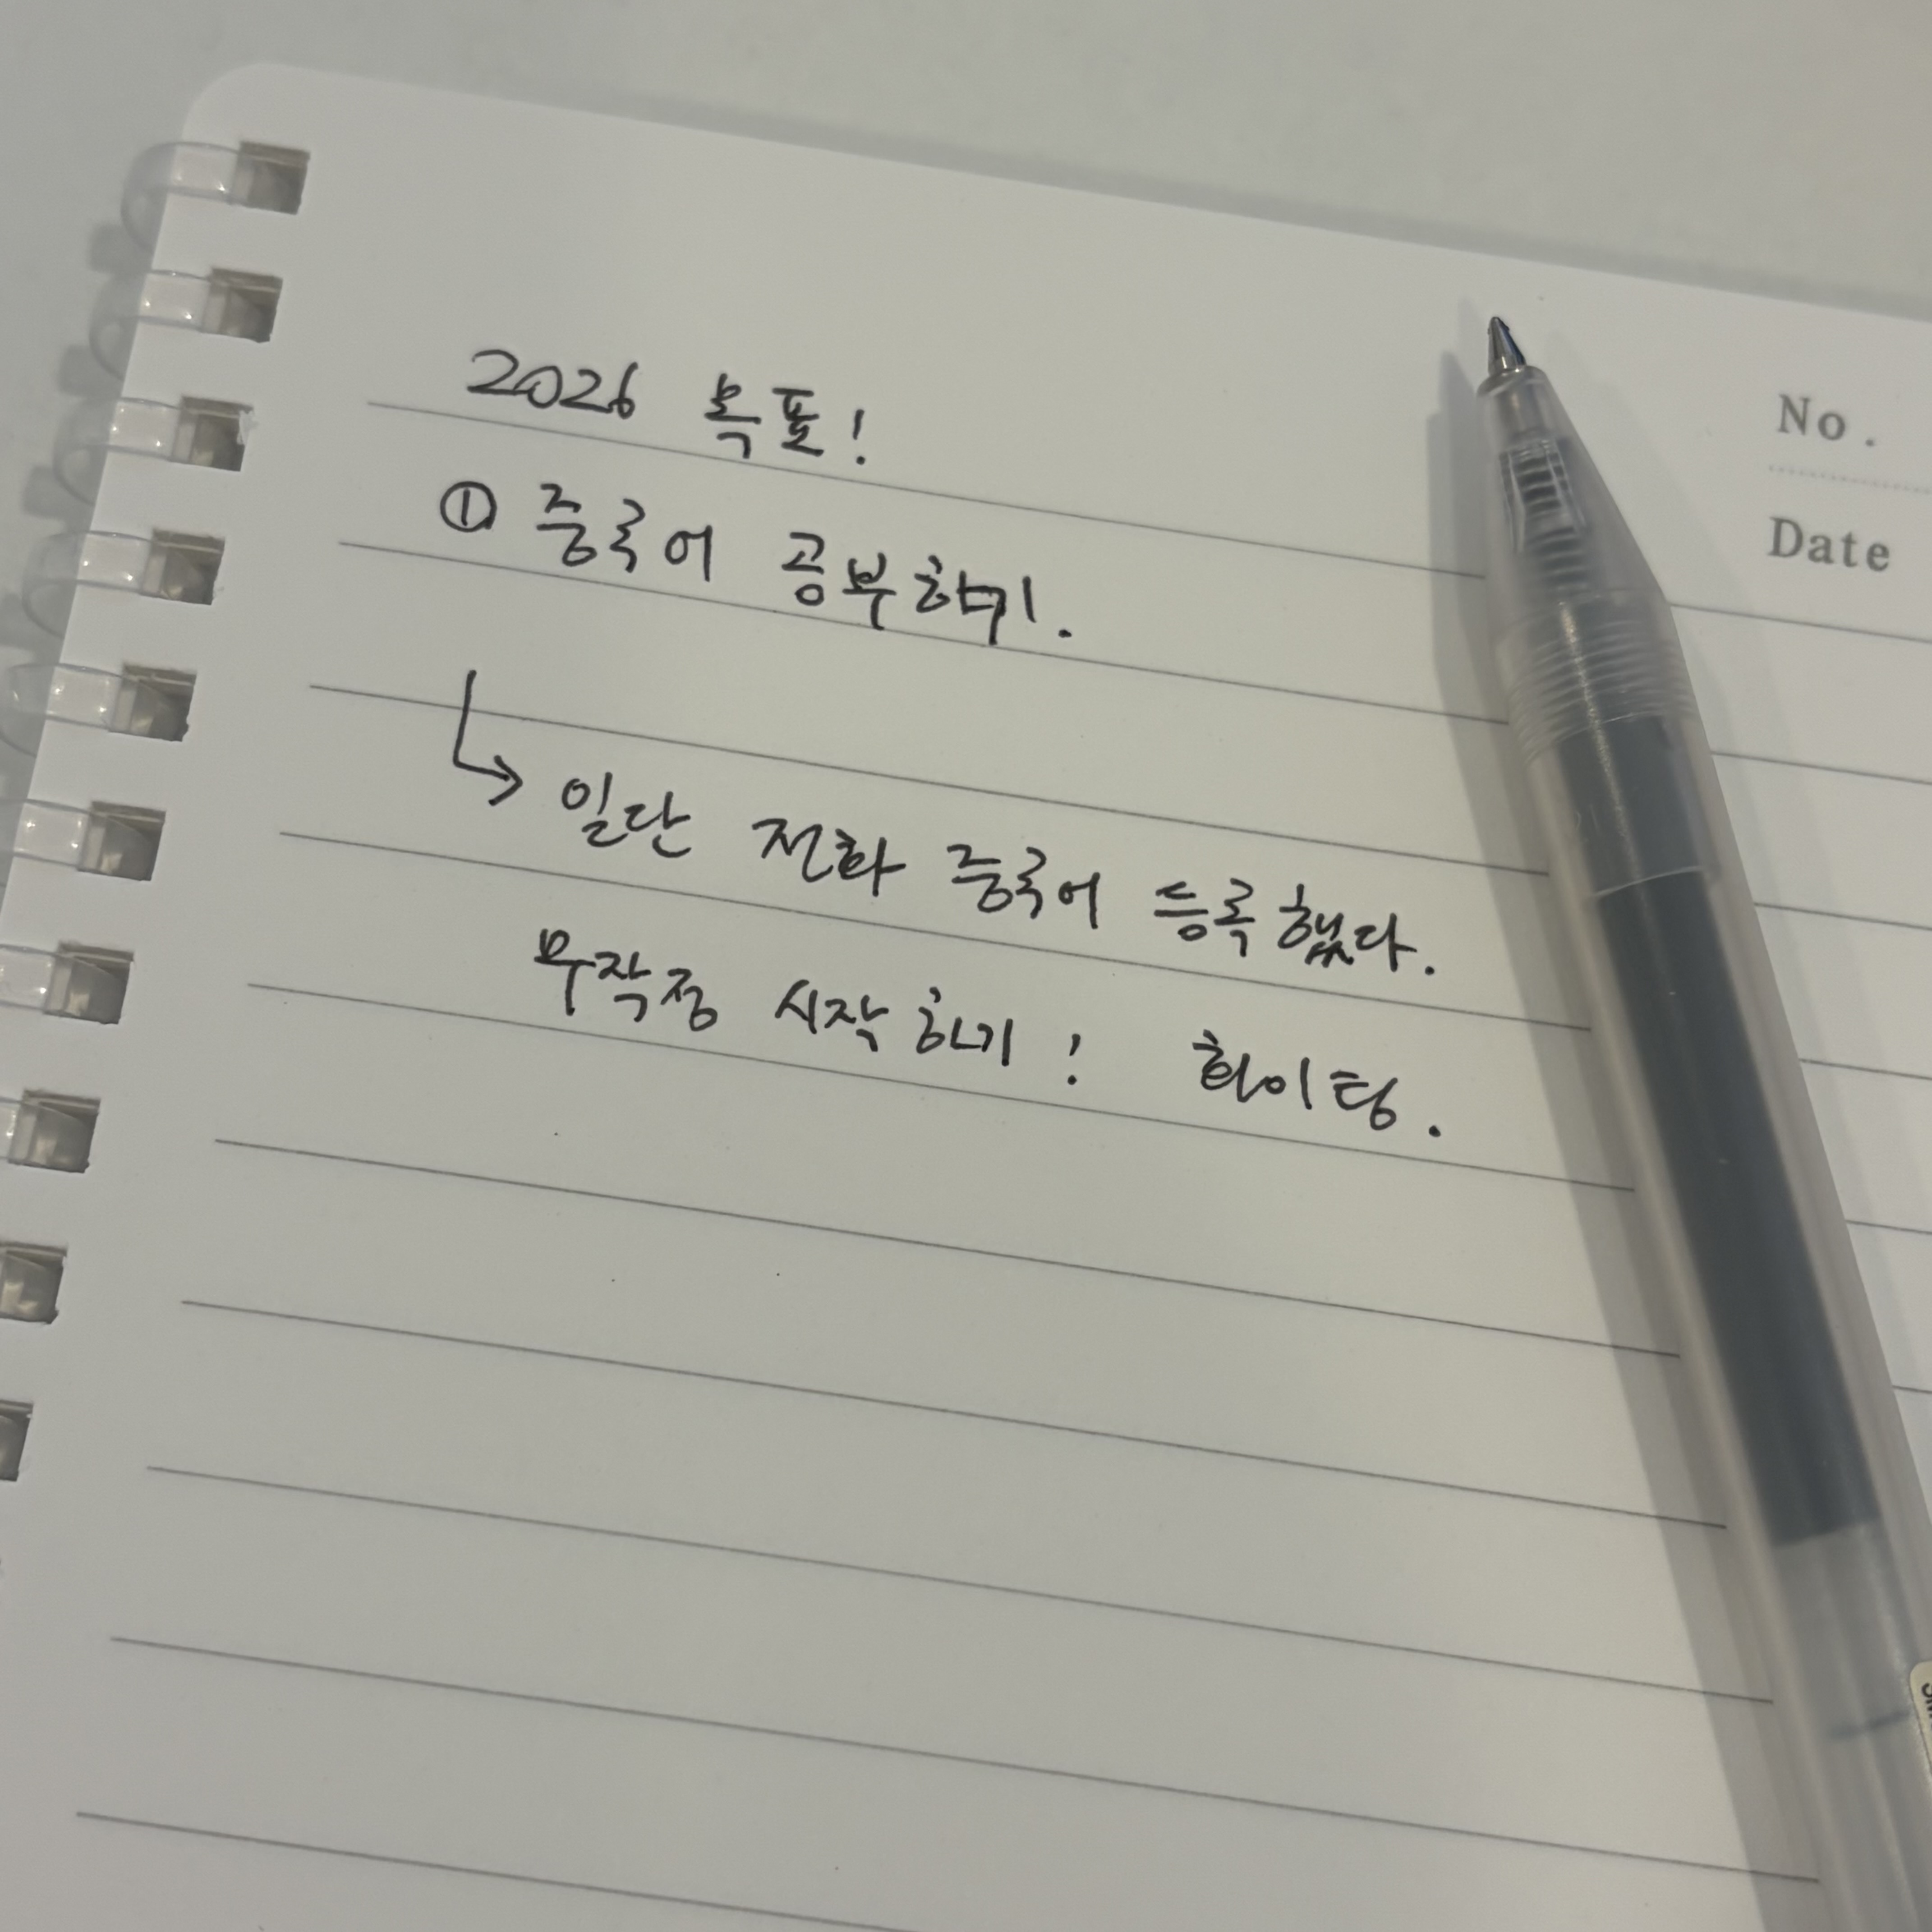 2026 목표!
① 중국어 공부하기.
↳ 일단 전화 중국어 등록했다.
무작정 시작하기! 화이팅.
No.
Date